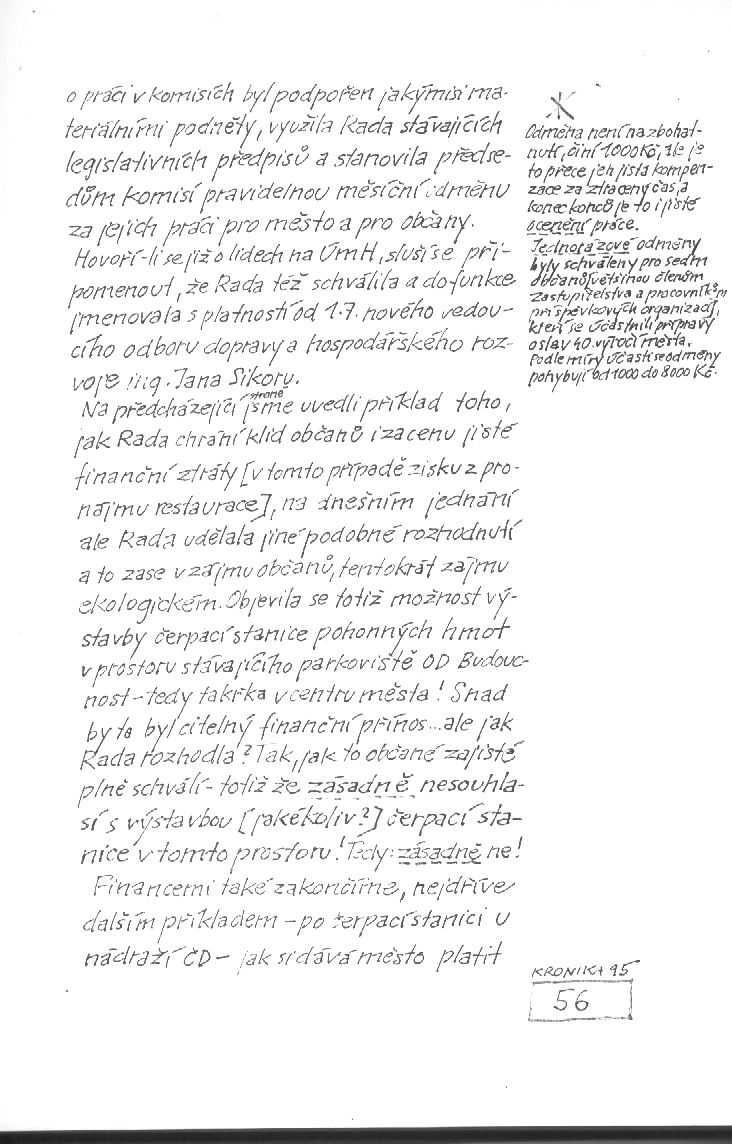 o práci v komisích byl podpořen jakýmisi ma-
teriálními podněty, využila Rada stávajících
legislativních předpisů a stanovila předse-
dům komisí pravidelnou měsíční odměnu
za jejich práci pro město a pro občany.
Hovoří-li se již o lidech na ÚmH, sluší se při-
pomenout, že Rada též schválila a do funkce
jmenovala s platností od 1.7. nového vedou-
cího odboru dopravy a hospodářského roz-
voje ing. Jana Sikoru.
Na předcházející straně jsme uvedli příklad toho,
jak Rada chrání klid občanů i za cenu jisté
finanční ztráty [v tomto případě zisku z pro-
nájmu restaurace], na dnešním jednání
ale Rada udělala jiné podobné rozhodnutí
a to zase v zájmu občanů, tentokrát zájmu
ekologickém. Objevila se totiž možnost vý-
stavby čerpací stanice pohonných hmot
v prostoru stávajícího parkoviště OD Budouc-
nost - tedy takřka v centru města! Snad
by to byl citelný finanční přínos... ale jak
Rada rozhodla? Tak, jak to občané zajisté
plně schválí - totiž že zásadně nesouhla-
sí s výstavbou [jakékoliv?] čerpací sta-
nice v tomto prostoru! Tedy: zásadně ne!
Financemi také zakončíme, nejdříve
dalším příkladem - po čerpací stanici u
nádraží ČD - jak si dává město platit
Odměna není na zbohat-
nutí, činí 1000 Kč, ale je
to přece jen jistá kompen-
zace za ztracený čas, a
konec konců je to i jisté
ocenění práce.
Jednorázové odměny
byly schváleny pro sedm
občanů, většinou členům
zastupitelstva a pracovníkům
příspěvkových organizací,
kteří se účastnili přípravy
oslav 40. výročí města.
Podle míry účasti se odměny
pohybují od 1000 do 8000 Kč.
KRONIKA 95
56